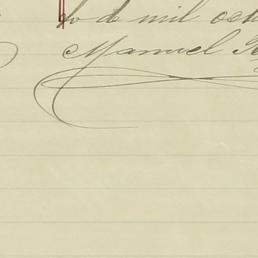 to de mil och
Manuel R